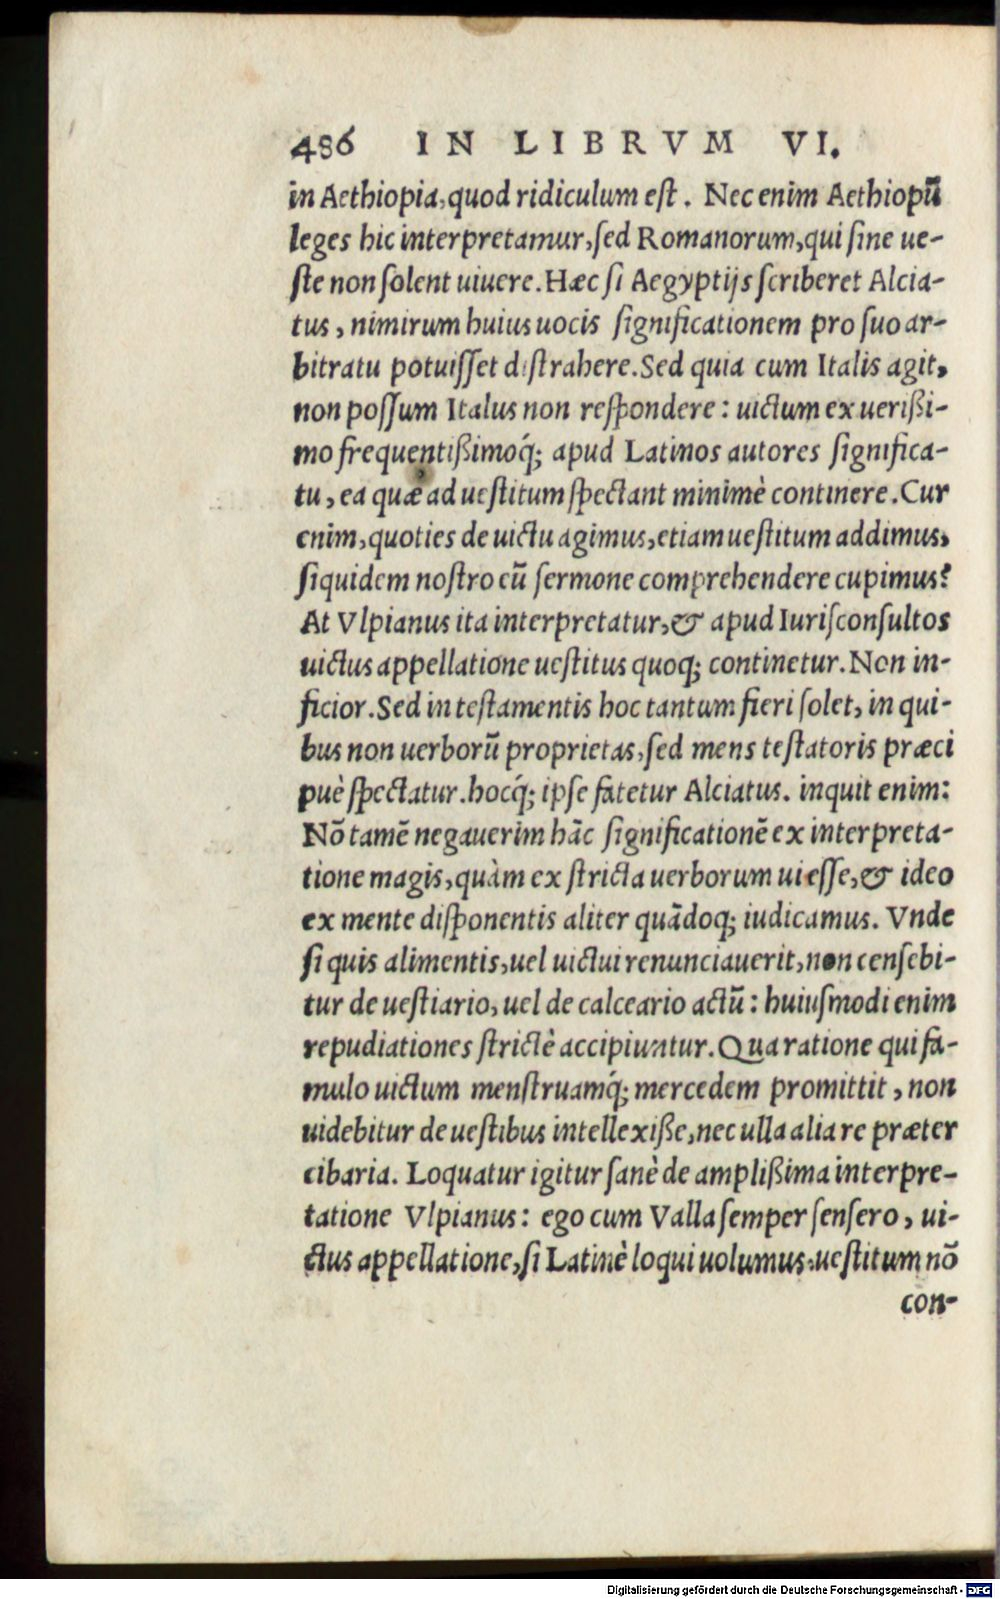 486 IN LIBRVM VI.
in Aethiopia, quod ridiculum eſt. Nec enim Aethiopũ
leges hic interpretamur, ſed Romanorum, qui ſine ue-
ſte non ſolent uiuere. Hæc ſi Aegyptijs ſcriberet Alcia-
tus, nimirum huius uocis ſignificationem pro ſuo ar-
bitratu potuiſſet diſtrahere. Sed quia cum Italis agit,
non poſſum Italus non reſpondere: uictum ex ueriſsi-
mo frequentiſsimoq́; apud Latinos autores ſignifica-
tu, ea quæ ad ueſtitum ſpectant minimè continere. Cur
enim, quoties de uictu agimus, etiam ueſtitum addimus,
ſiquidem noſtro eũ ſermone comprehendere cupimus?
At Vlpianus ita interpretatur, & apud Iuriſconſultos
uictus appellatione ueſtitus quoq; continetur. Non in-
ficior. Sed in teſtamentis hoc tantum fieri ſolet, in qui-
bus non uerborũ proprietas, ſed mens teſtatoris præci
puè ſpectatur. hocq́; ipſe fatetur Alciatus. inquit enim:
Nõ tamẽ negauerim hãc ſignificationẽ ex interpreta-
tione magis, quàm ex ſtricta uerborum ui eſſe, & ideo
ex mente diſponentis aliter quãdoq; iudicamus. Vnde
ſi quis alimentis, uel uictui renunciauerit, non cenſebi-
tur de ueſtiario, uel de calceario actũ: huiuſmodi enim
repudiationes ſtrictè accipiuntur. Qua ratione qui fa-
mulo uictum menſtruamq́; mercedem promittit, non
uidebitur de ueſtibus intellexiſſe, nec ulla alia re præter
cibaria. Loquatur igitur ſanè de ampliſsima interpre-
tatione Vlpianus: ego cum Valla ſemper ſenſero, ui-
ctus appellatione, ſi Latinè loqui uolumus, ueſtitum nõ
con-
Digitalisierung gefördert durch die Deutsche Forschungsgemeinschaft - DFG